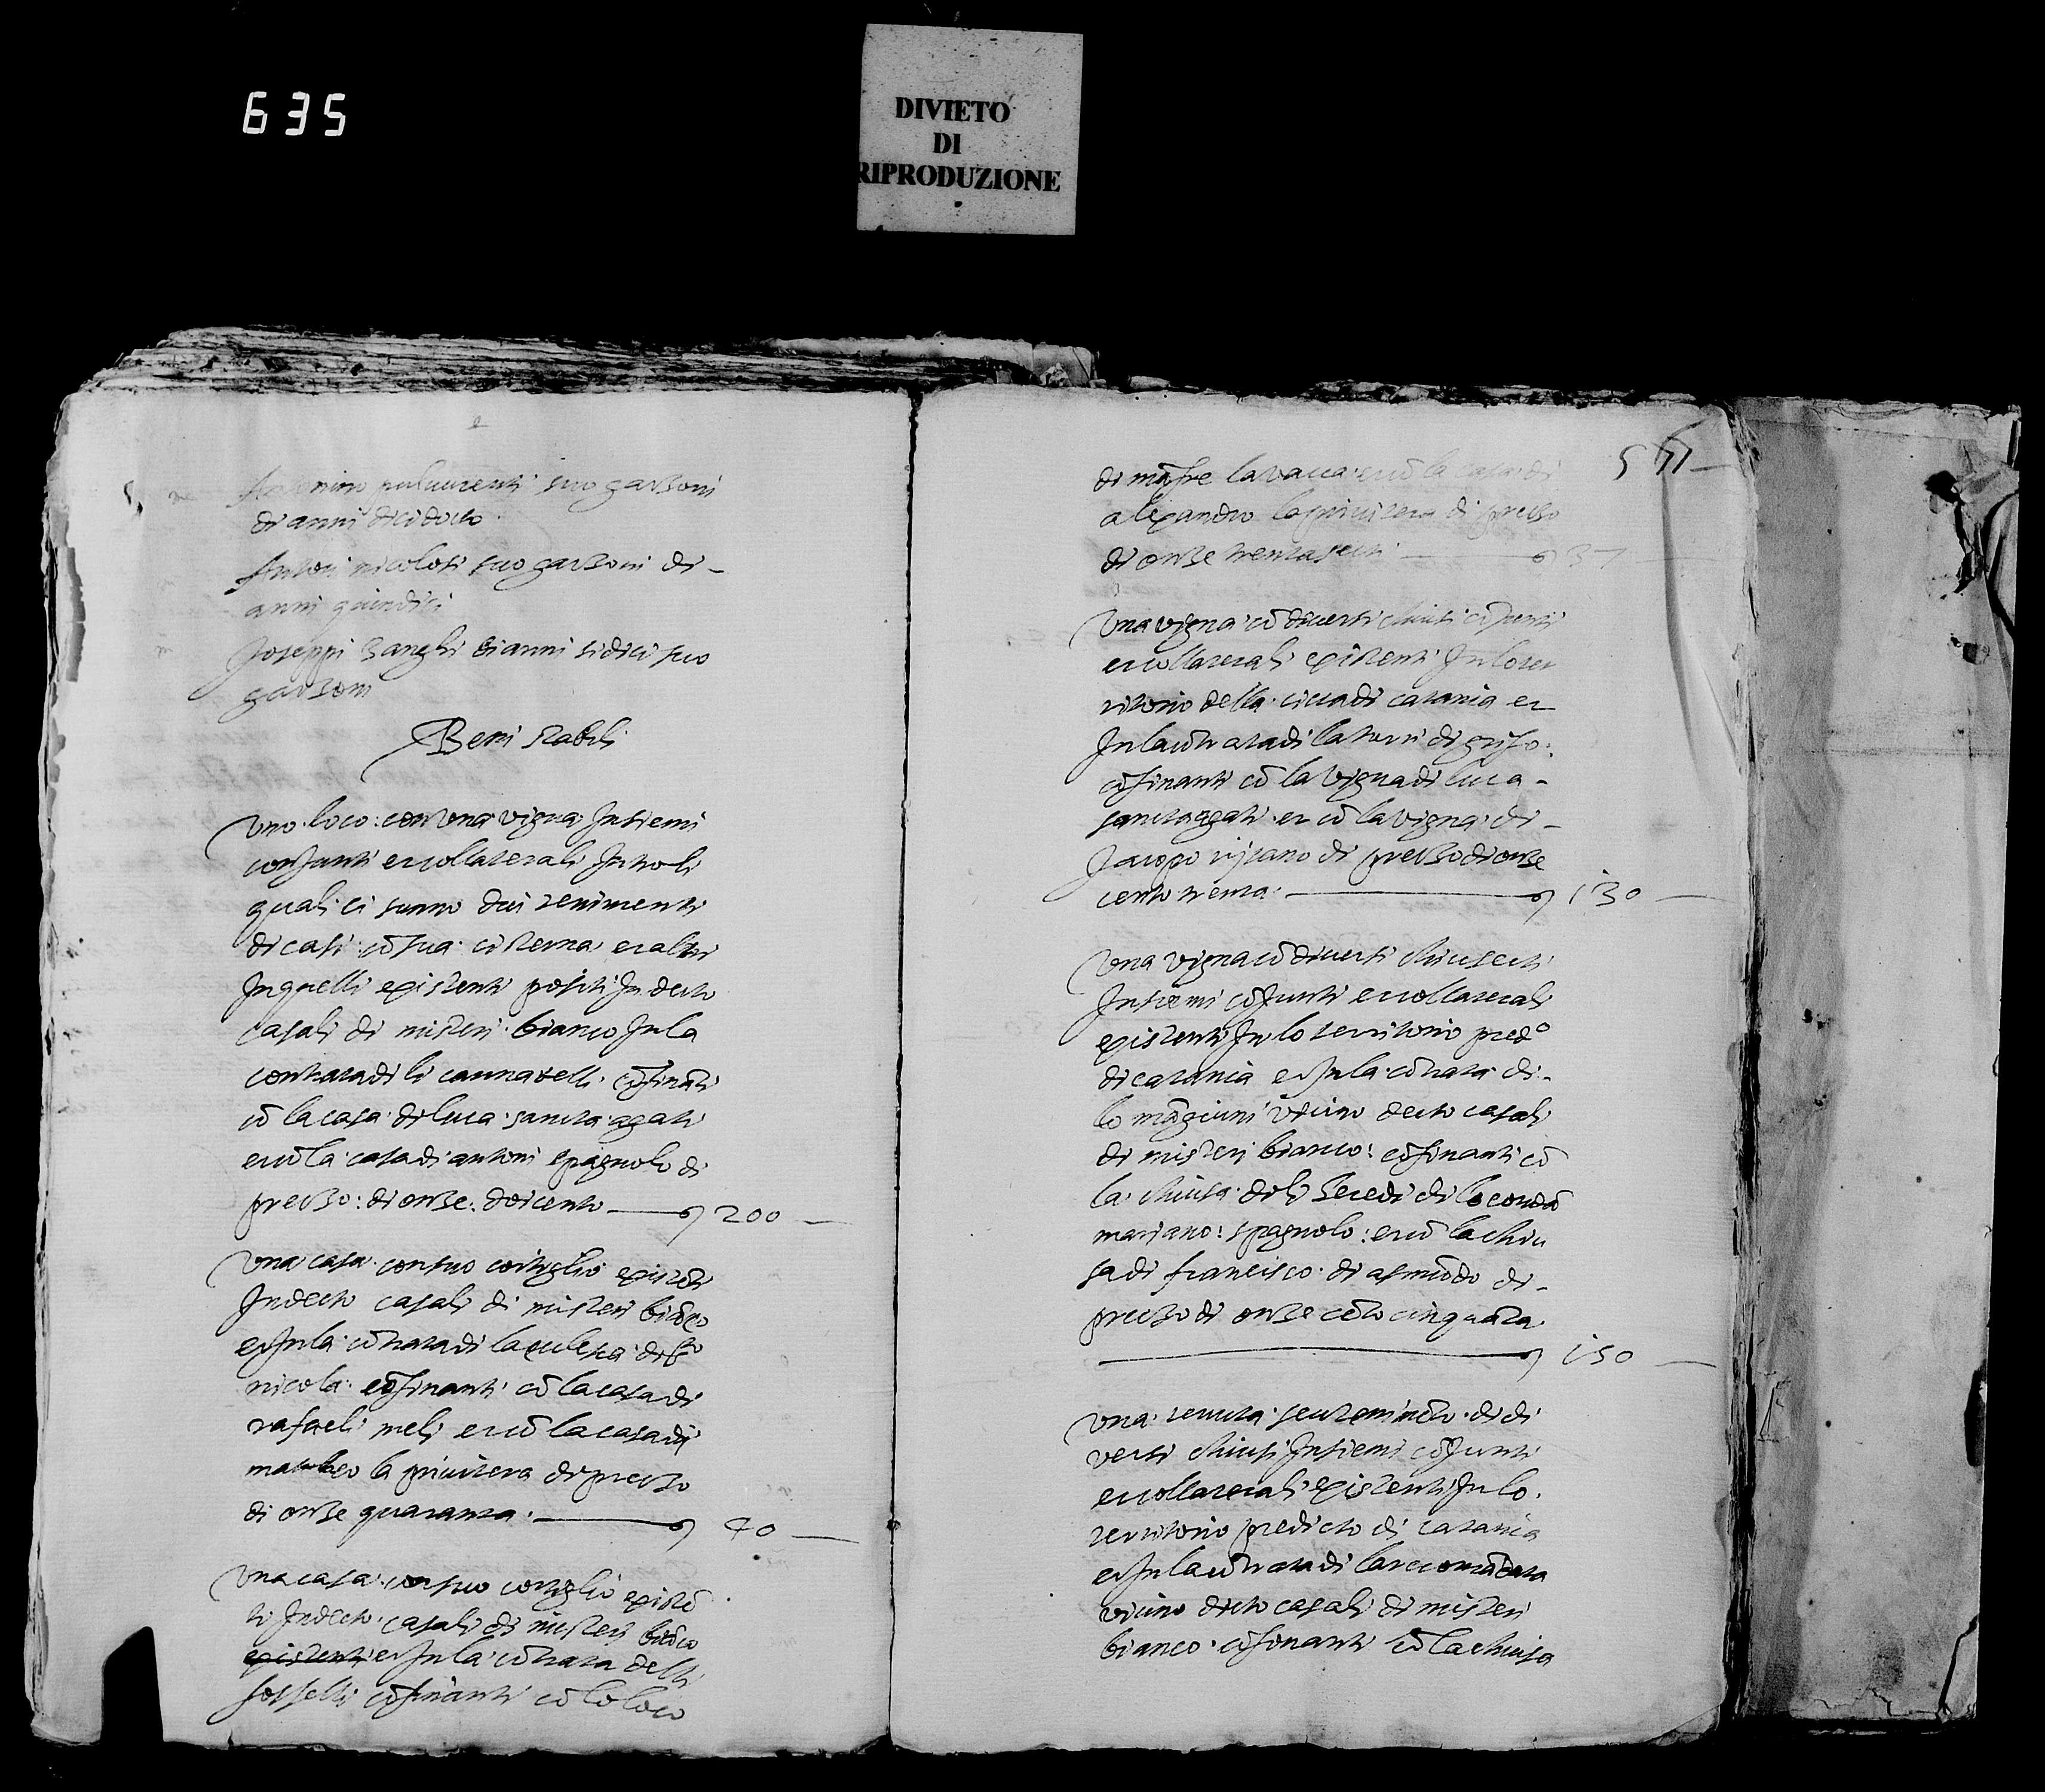 635
DIVIETO
DI
RIPRODUZIONE
Antonino pulvirenti suo garzoni
di anni dicidocto
Antoni nicolosi suo garzoni di -
anni quindici
Joseppi Zanghi di anni sidici suo
garzoni
Beni stabili
Uno loco: con una vigna Insiemi
conJunti et collaterali Intro li
quali ci sunno dui tenimenti
di casi: cō sua cisterna et altri
In quelli existenti positi In decto
casali di misteri bianco In la
contrata di li cannavelli cōfināti
cō la casa di luca sancta agati
et cō la casa di antoni spagnolo di
prezzo: di onze: doicento 200
Una casa con suo cortiglio existēti
In decto casali di misteri biāco
et In la cōtrata di la eclesia di sto
nicola cōfinanti cō la casa di
rafaeli meli et cō la casa di
mattheo la privitera di prezzo
di onze quaranta. 40
Una casa con suo cortiglio existē
ti In decto casali di misteri biāco
existenti et In la cōtrata delli
fosselli cōfinanti cō lo loco
di la vacca et cō la casa di
alexandro la privitera di prezzo
di onze trentasetti 37
Una vigna cō diversi chiusi cōJunti
et collaterali existenti In lo ter
ritorio della cita di catania et
In la cōtrata di la turri di grifo:
cōfinanti cō la vigna di luca -
sancta agati et cō la vigna di -
Jacopo di prezzo di onze
cento trenta: 130
Una vigna cō diversi chiusecti
Insiemi cōJunti et collaterali
existenti In lo territorio predo
di catania et In la cōtrata di -
lo māgiuni vicino decto casali
di misteri bianco: cōfinanti cō
la chiusa di li heredi di lo condā
mariano: spagnolo: et cō la chiu
sa di francisco di asmūdo di -
prezzo di onze cēto cinquāta
150
Una tenuta seu tenimēto di di
versi chiusi Insiemi cōJunti
et collaterali existenti In lo
territorio predicto di catania
et In la cōtrata di la recomādata
vicino dicto casali di misteri
bianco cōfinanti cō la chiusa